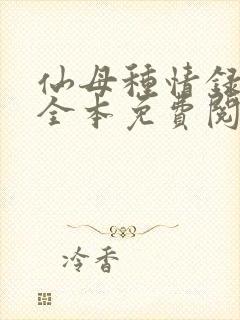 仙母種情録
全本免費閱
冷香